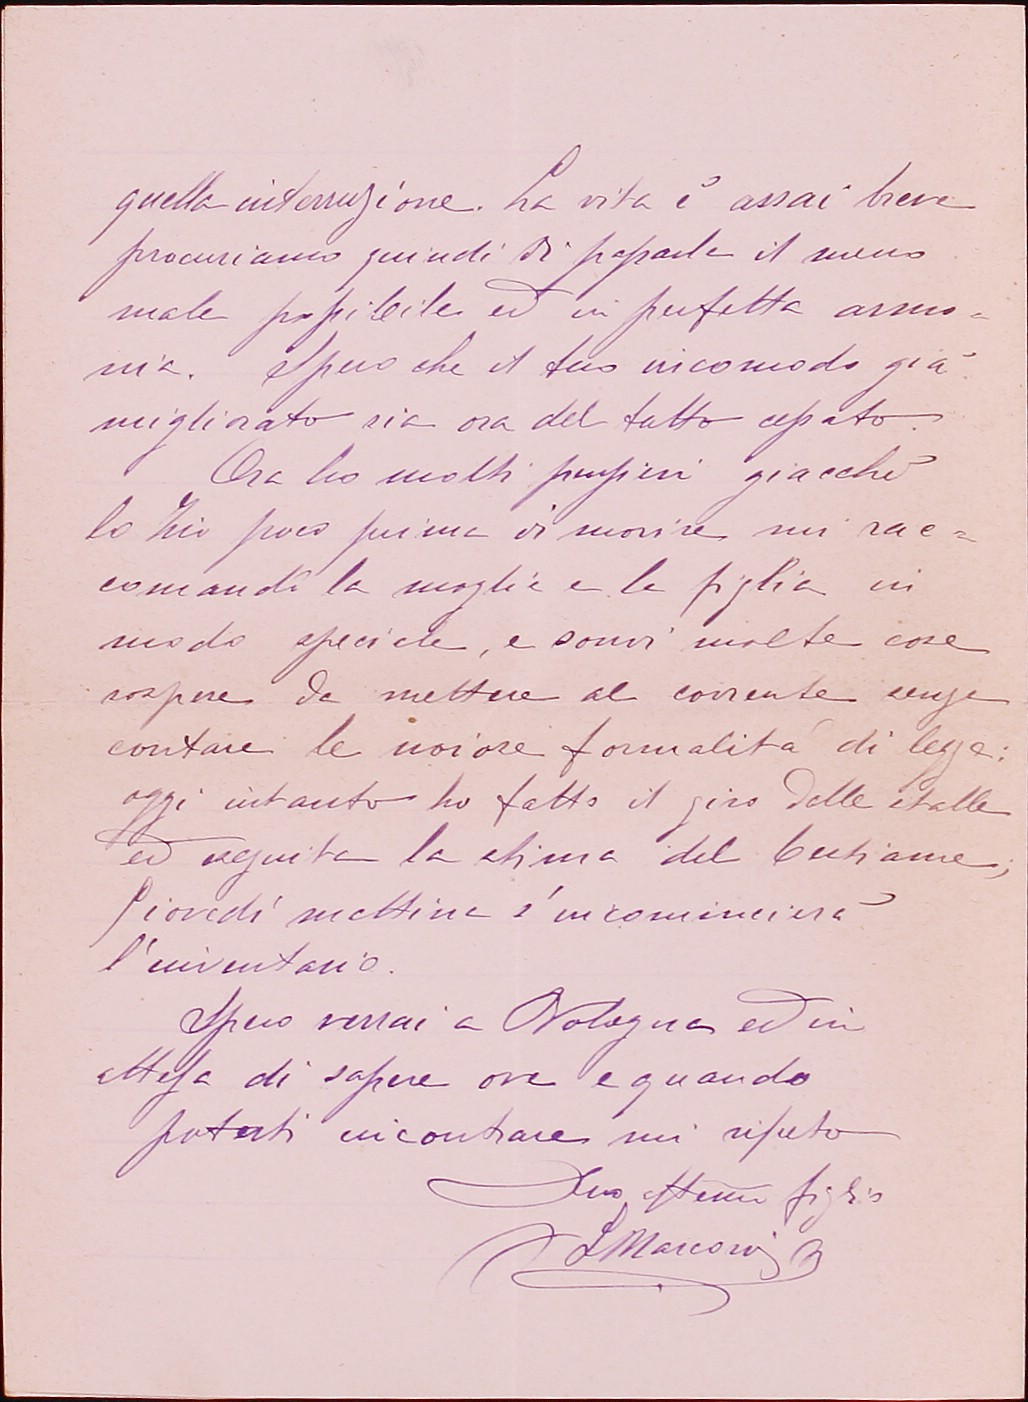 quella interruzione. La vita è assai breve
procuriamo quindi di passarla il meno
male possibile ed in perfetta armo=
nia. Spero che il tuo incomodo già
migliorato sia ora del tutto cessato.
Ora ho molti pensieri giacchè
lo Zio poco prima di morire mi rac=
comandò la moglie e la figlia in
modo speciale, e sonvi molte cose
sospese da mettere al corrente senza
contare le noiose formalità di legge:
oggi intanto ho fatto il giro delle stalle
ed eseguita la stima del bestiame;
Giovedì mattina s'incomincierà
l'inventario.
Spero verrai a Bologna ed in
attesa di sapere ove e quando
poterti incontrare mi ripeto
Tuo affemo figlio
L Marconi